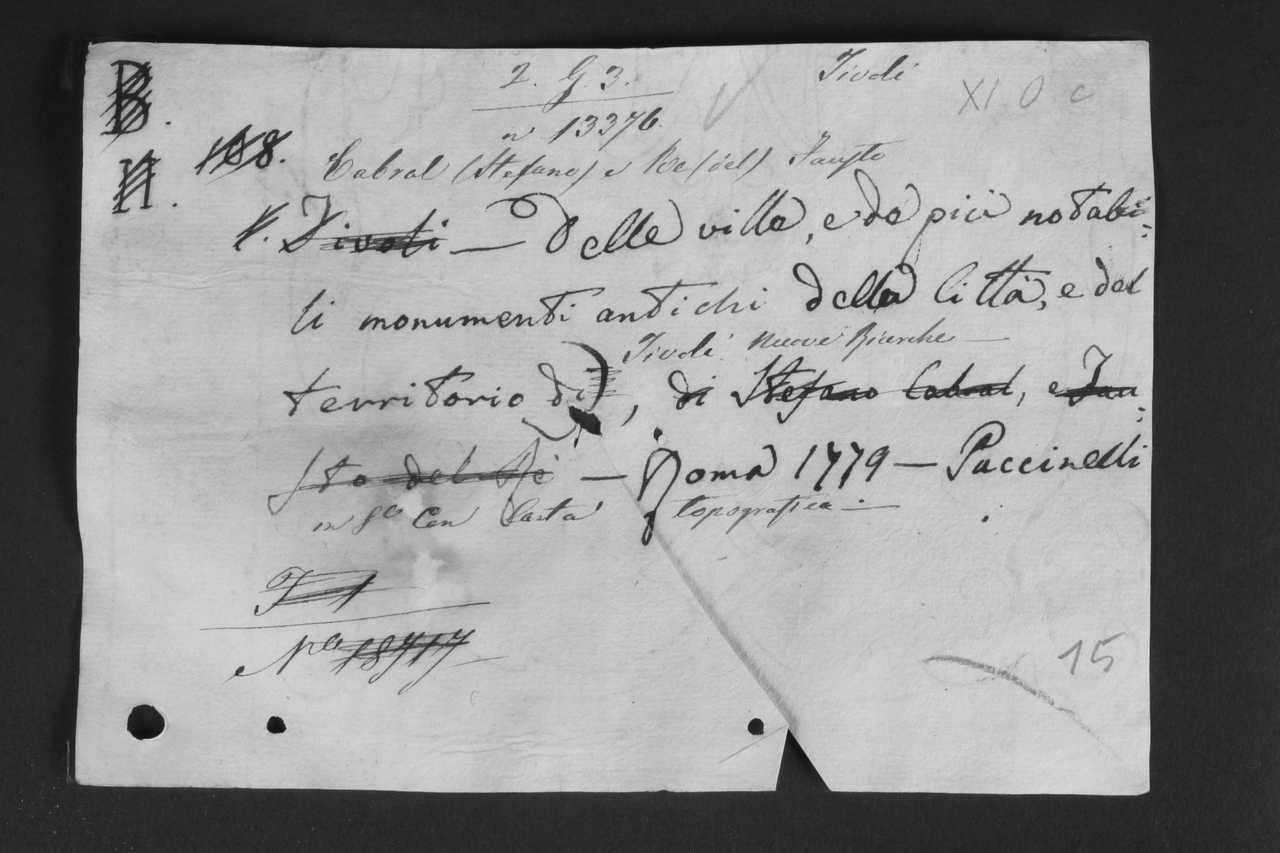 2. G. 3.
Tivoli
XI O c
n 13376.
B.
N.
108.
Cabral (Stefano) e Re (del) Fausto
V. Tivoli — Delle ville, e de' più notabi:
li monumenti antichi della Città, e del
Tivoli. Nuove Ricerche —
territorio di, di Stefano Cabral, e Fau:
sto del Rè — Roma 1779 — Puccinelli
in 8º Con Carta topografica —
Nº 18717
15